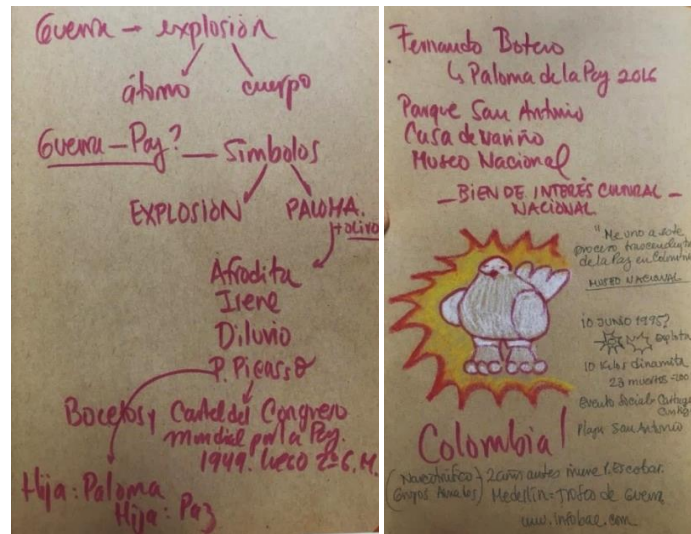 Guerra → explosión
átomo cuerpo
Guerra – Paz? — Símbolos
EXPLOSIÓN PALOMA.
+ olivo
Afrodita
Irene
Diluvio
P. Picasso
Bocetos y Cartel del Congreso
mundial por la Paz.
1949. luego 2ª G.M.
Hija: Paloma
Hija: Paz
Fernando Botero
↳ Paloma de la Paz 2016
Parque San Antonio
Casa de Nariño
Museo Nacional
— BIEN DE INTERÉS CULTURAL —
NACIONAL
"Me uno a este
proceso trascendental
de la Paz en Colombia
MUSEO NACIONAL
10 JUNIO 1995?
explota
10 kilos dinamita
23 muertos
Evento Social
Plaza San Antonio
Colombia!
(Narcotráfico + 2 años antes muere P. Escobar.
Grupos Armados) Medellín = Trofeo de Guerra
www.infobae.com